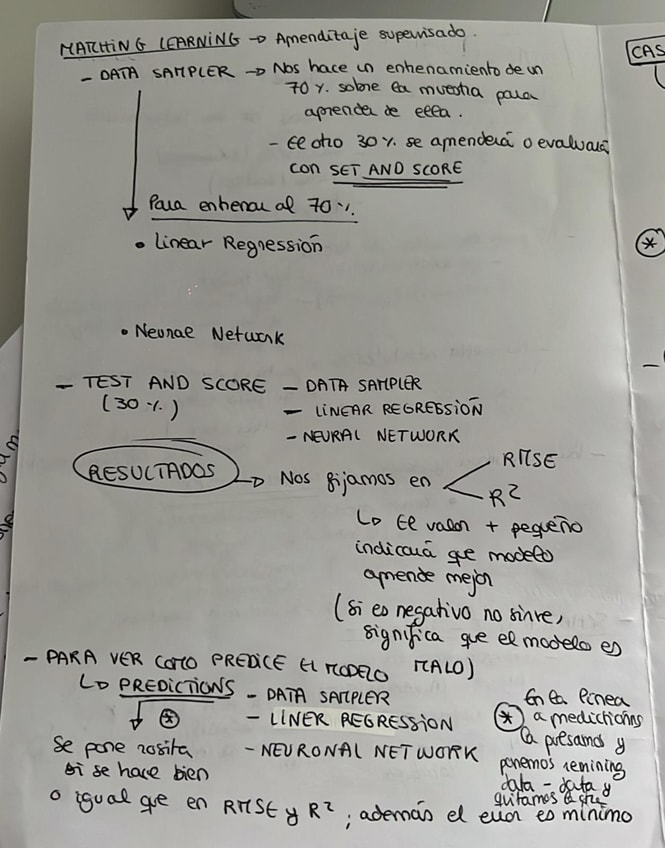 MATCHING LEARNING → Aprenditaje supervisado.
- DATA SAMPLER → Nos hace un entrenamiento de un
70 % sobre la muestra para
aprender de ella.
- El otro 30 % se aprenderá o evaluará
con SET AND SCORE
Para entrenar al 70 %.
• Linear Regressión
• Neural Network
- TEST AND SCORE - DATA SAMPLER
(30 %) - LINEAR REGRESSIÓN
- NEURAL NETWORK
RESULTADOS → Nos fijamos en RMSE
R²
↳ El valor + pequeño
indicará que modelo
aprende mejor
(si es negativo no sirve,
significa que el modelo es
MALO)
- PARA VER COMO PREDICE EL MODELO
↳ PREDICTIONS - DATA SAMPLER
↓ * - LINER REGRESSION
Se pone rosita - NEURONAL NETWORK
si se hace bien
* En la línea
a predictions
la presamos y
ponemos remining
data - data y
quitamos la
o igual que en RMSE y R², además el error es mínimo
CAS
*
-